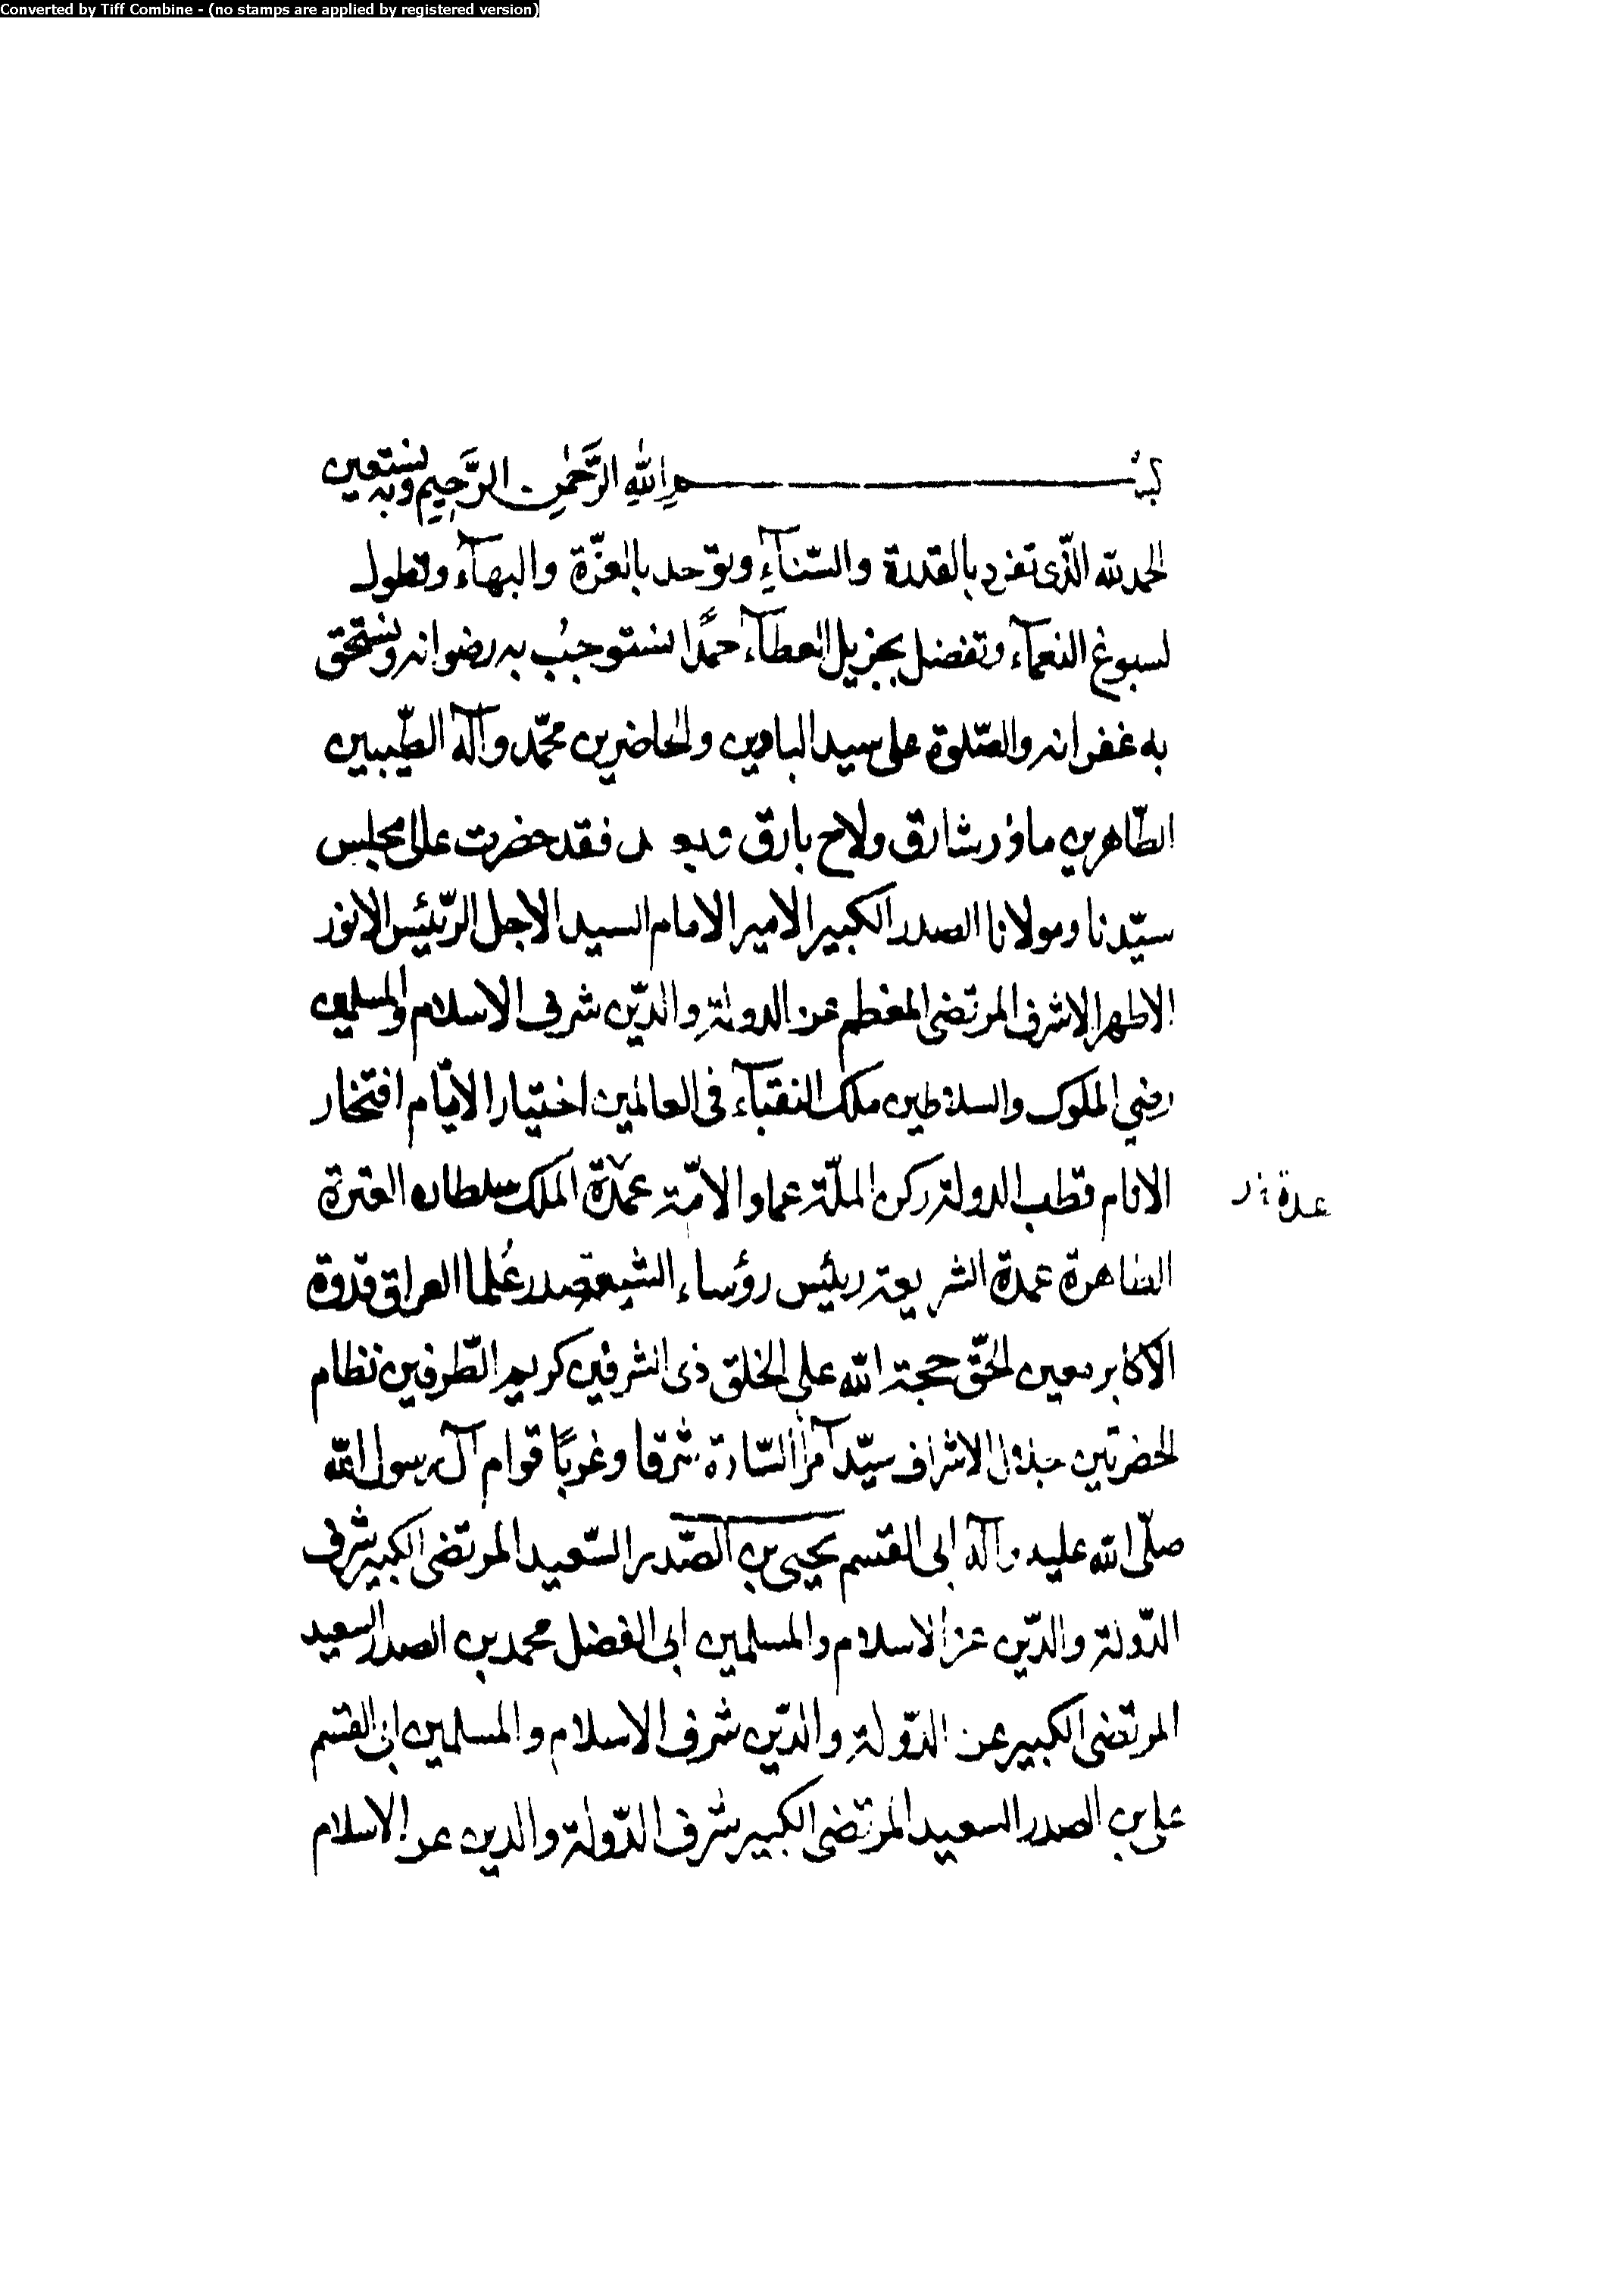 Converted by Tiff Combine - (no stamps are applied by registered version)
بسم الله الرَّحمٰن الرَّحيم وبه نستعين
الحمد لله الذّى تفرد بالقدرة والسّنآءِ وتوّحد بالعزّة والبهآء وتطول
لسبوغ النعمآء وتفضل بجزيل العطآء حمدًا نستوجبُ به رضوانه ونستحق
به غفرانه والصّلوة على سيد البادين والحاضرين محمّد وآله الطّيبين
الطّاهرين ماذر شارق ولاح بارق وبعد فقد حضرت عالى مجلس
سيّدنا ومولانا الصدر الكبير الامير الامام السيد الاجل الرّئيس الانور
الاطهر الاشرف المرتضى المعظم عز الدولة والدّين شرف الاسلام والمسلمين
رضي الملوك والسلاطين ملك النقبآء فى العالمين اختيار الايّام افتخار
الانام قطب الدولة ركن الملّة عماد الامّة عمدّة الملك سلطان العترة
عدة
الطاهرة عمدة الشريعة رئيس رؤساء الشيعة صدر عُلما العراق قدوة
الاكابر معين الحقّ حجة الله على الخلق ذى الشرفين كريم الطّرفين نظام
الحضرتين جلال الاشراف سيّد آمرأ السّادة شرقا وغربًا قوام آل رسول الله
صلّى الله عليه وآله ابى القسم يحيى بن الصّدر السّعيد المرتضى الكبير شرف
الدّولة والدّين عز الاسلام والمسلمين ابى الفضل محمد بن الصدر السعيد
المرتضى الكبير عز الدّولة والدّين شرف الاسلام والمسلمين ابى القسم
على بن الصدر السعيد المرتضى الكبير شرف الدّولة والدين عز الاسلام